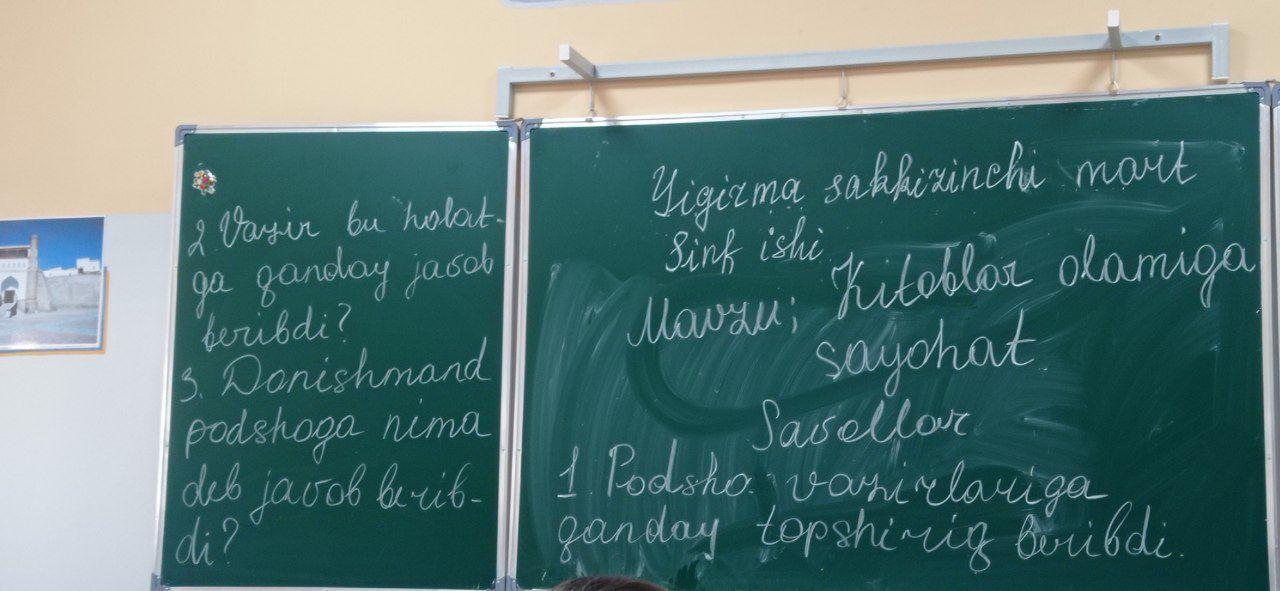 Yigirma sakkizinchi mart
Sinf ishi
Mavzu; Kitoblar olamiga
sayohat
Savollar
1. Podsho vazirlariga
qanday topshiriq beribdi.
2 Vazir bu holat-
ga qanday javob
beribdi?
3. Donishmand
podshoga nima
deb javob berib-
di?